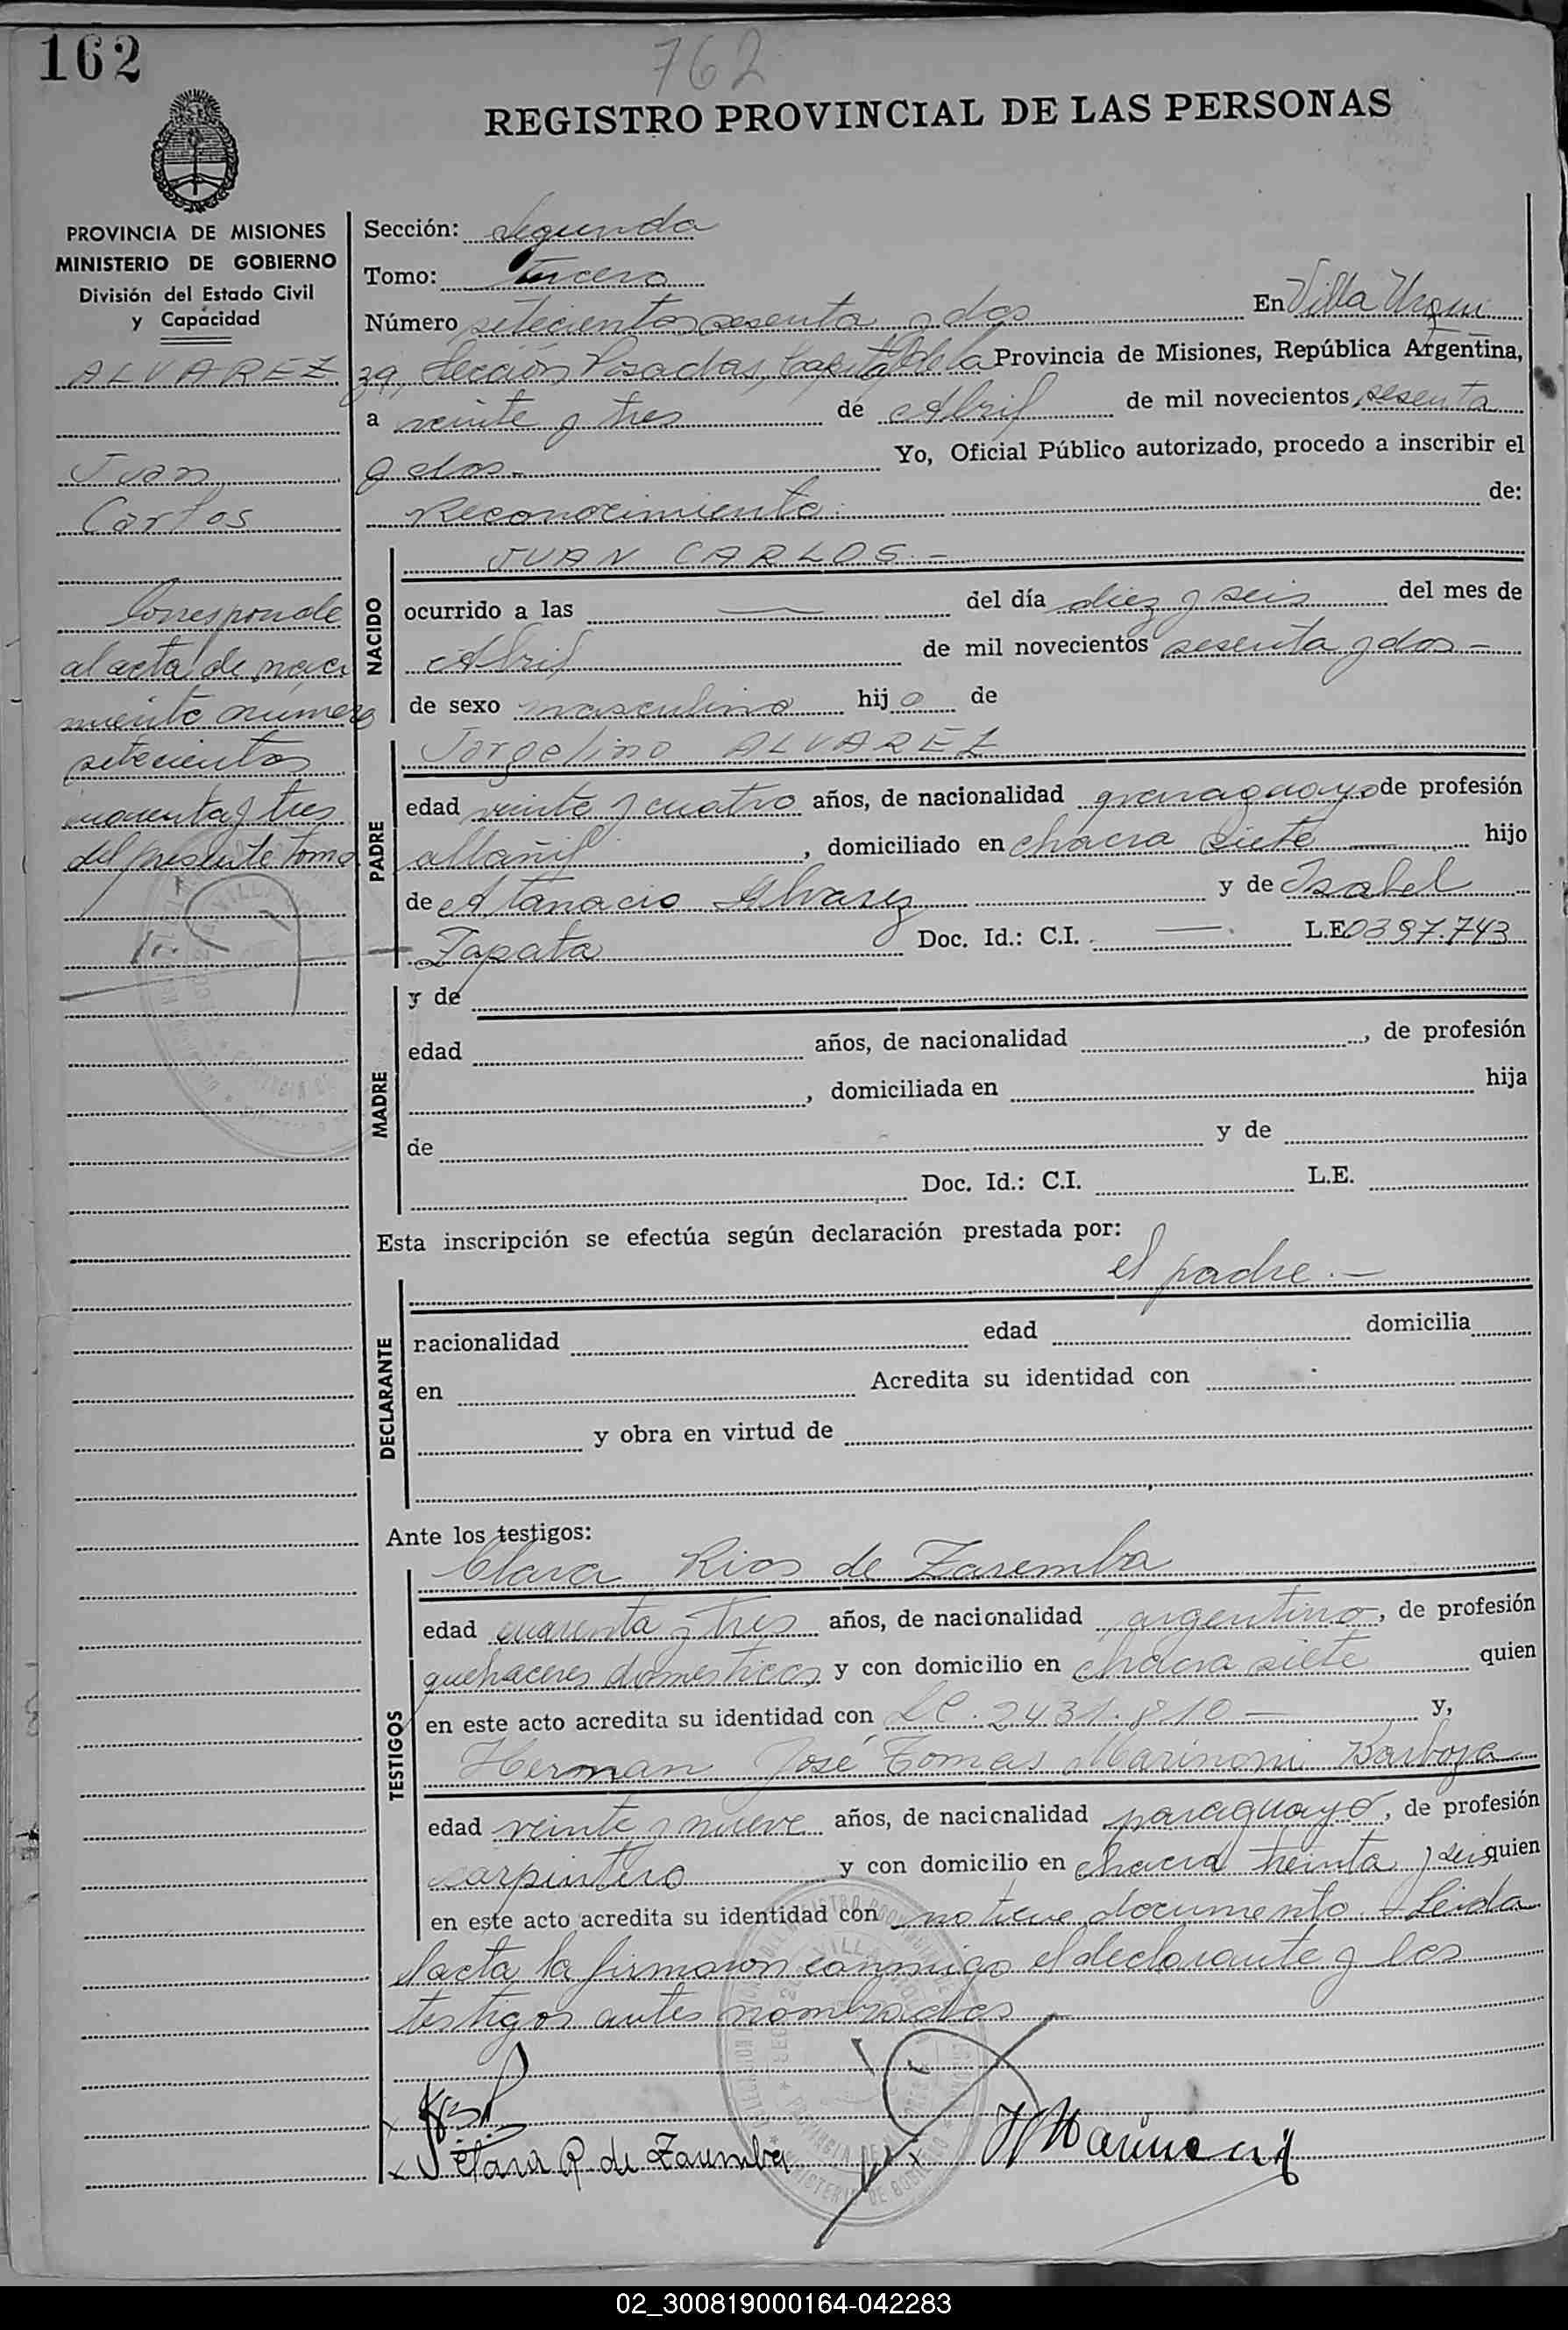 162
762
REGISTRO PROVINCIAL DE LAS PERSONAS
PROVINCIA DE MISIONES
MINISTERIO DE GOBIERNO
División del Estado Civil
y Capacidad
ALVAREZ
Juan
Carlos
Corresponde
al acta de naci
miento número
setecientos
del presente tomo
Sección: Segunda
Tomo: Tercero
Número setecientos sesenta y dos En Villa Urqui
za, Sección Posadas, Capital de la Provincia de Misiones, República Argentina,
a veinte y tres de Abril de mil novecientos sesenta
y dos.- Yo, Oficial Público autorizado, procedo a inscribir el
Reconocimiento de:
NACIDO
JUAN CARLOS.-
ocurrido a las — del día diez y seis del mes de
Abril de mil novecientos sesenta y dos-
de sexo masculino hijo de
PADRE
Jorgelino ALVAREZ
edad veinte y cuatro años, de nacionalidad de profesión
albañil, domiciliado en chacra siete — hijo
de Atanacio Alvarez y de Isabel
Zapata Doc. Id.: C.I. — L.E. 0397.743
MADRE
y de
edad años, de nacionalidad , de profesión
, domiciliada en hija
de y de
Doc. Id.: C.I. L.E.
Esta inscripción se efectúa según declaración prestada por:
el padre.-
DECLARANTE
nacionalidad edad domicilia
en Acredita su identidad con
y obra en virtud de
Ante los testigos:
TESTIGOS
Clara Rios de Zaremba
edad cuarenta y tres años, de nacionalidad argentino, de profesión
quehaceres domesticos y con domicilio en chacra siete quien
en este acto acredita su identidad con LC. 2431.810 — y,
Herman José Tomas Marinoni Barboza
edad veinte y nueve años, de nacionalidad paraguayo, de profesión
carpintero y con domicilio en chacra treinta y seis quien
en este acto acredita su identidad con no tiene documento.- Leida
el acta, la firmaron conmigo el declarante y los
testigos antes nombrados
Clara R de Zaremba
HMarinoni
02_300819000164-042283